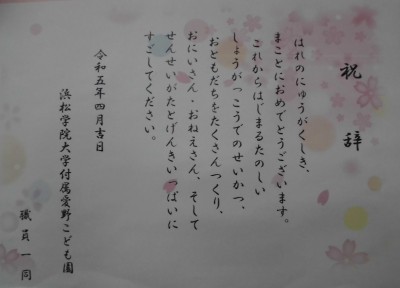 祝辞
はれのにゅうがくしき、
まことにおめでとうございます。
これからはじまるたのしい
しょうがっこうでのせいかつ、
おともだちをたくさんつくり、
おにいさん・おねえさん、そして
せんせいがたとげんきいっぱいに
すごしてください。
令和五年四月吉日
浜松学院大学付属愛野こども園
職員一同